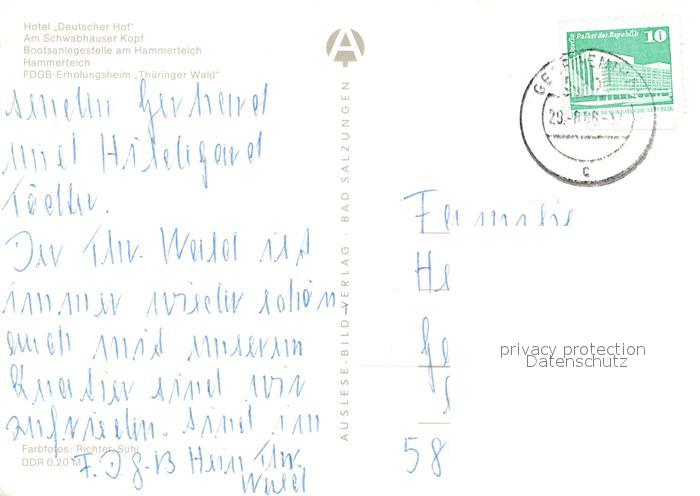 Hotel „Deutscher Hof"
Am Schwabhäuser Kopf
Bootsanlegestelle am Hammerteich
Hammerteich
FDGB-Erholungsheim „Thüringer Wald"
senden Gerhard
und Hildegard
Der Thr. Wald ist
immer wieder schön
auch mit unserem
Quatier sind wir
zufrieden. Sind im
F.D.G.B Heim Thr.
Wald
Farbfotos: Richter, Suhl
DDR 0,20 M
AUSLESE-BILD-VERLAG · BAD SALZUNGEN
Berlin Palast der Republik
10
DEUTSCHE DEMOKRATISCHE REPUBLIK
Familie
He
Ge
58
privacy protection
Datenschutz